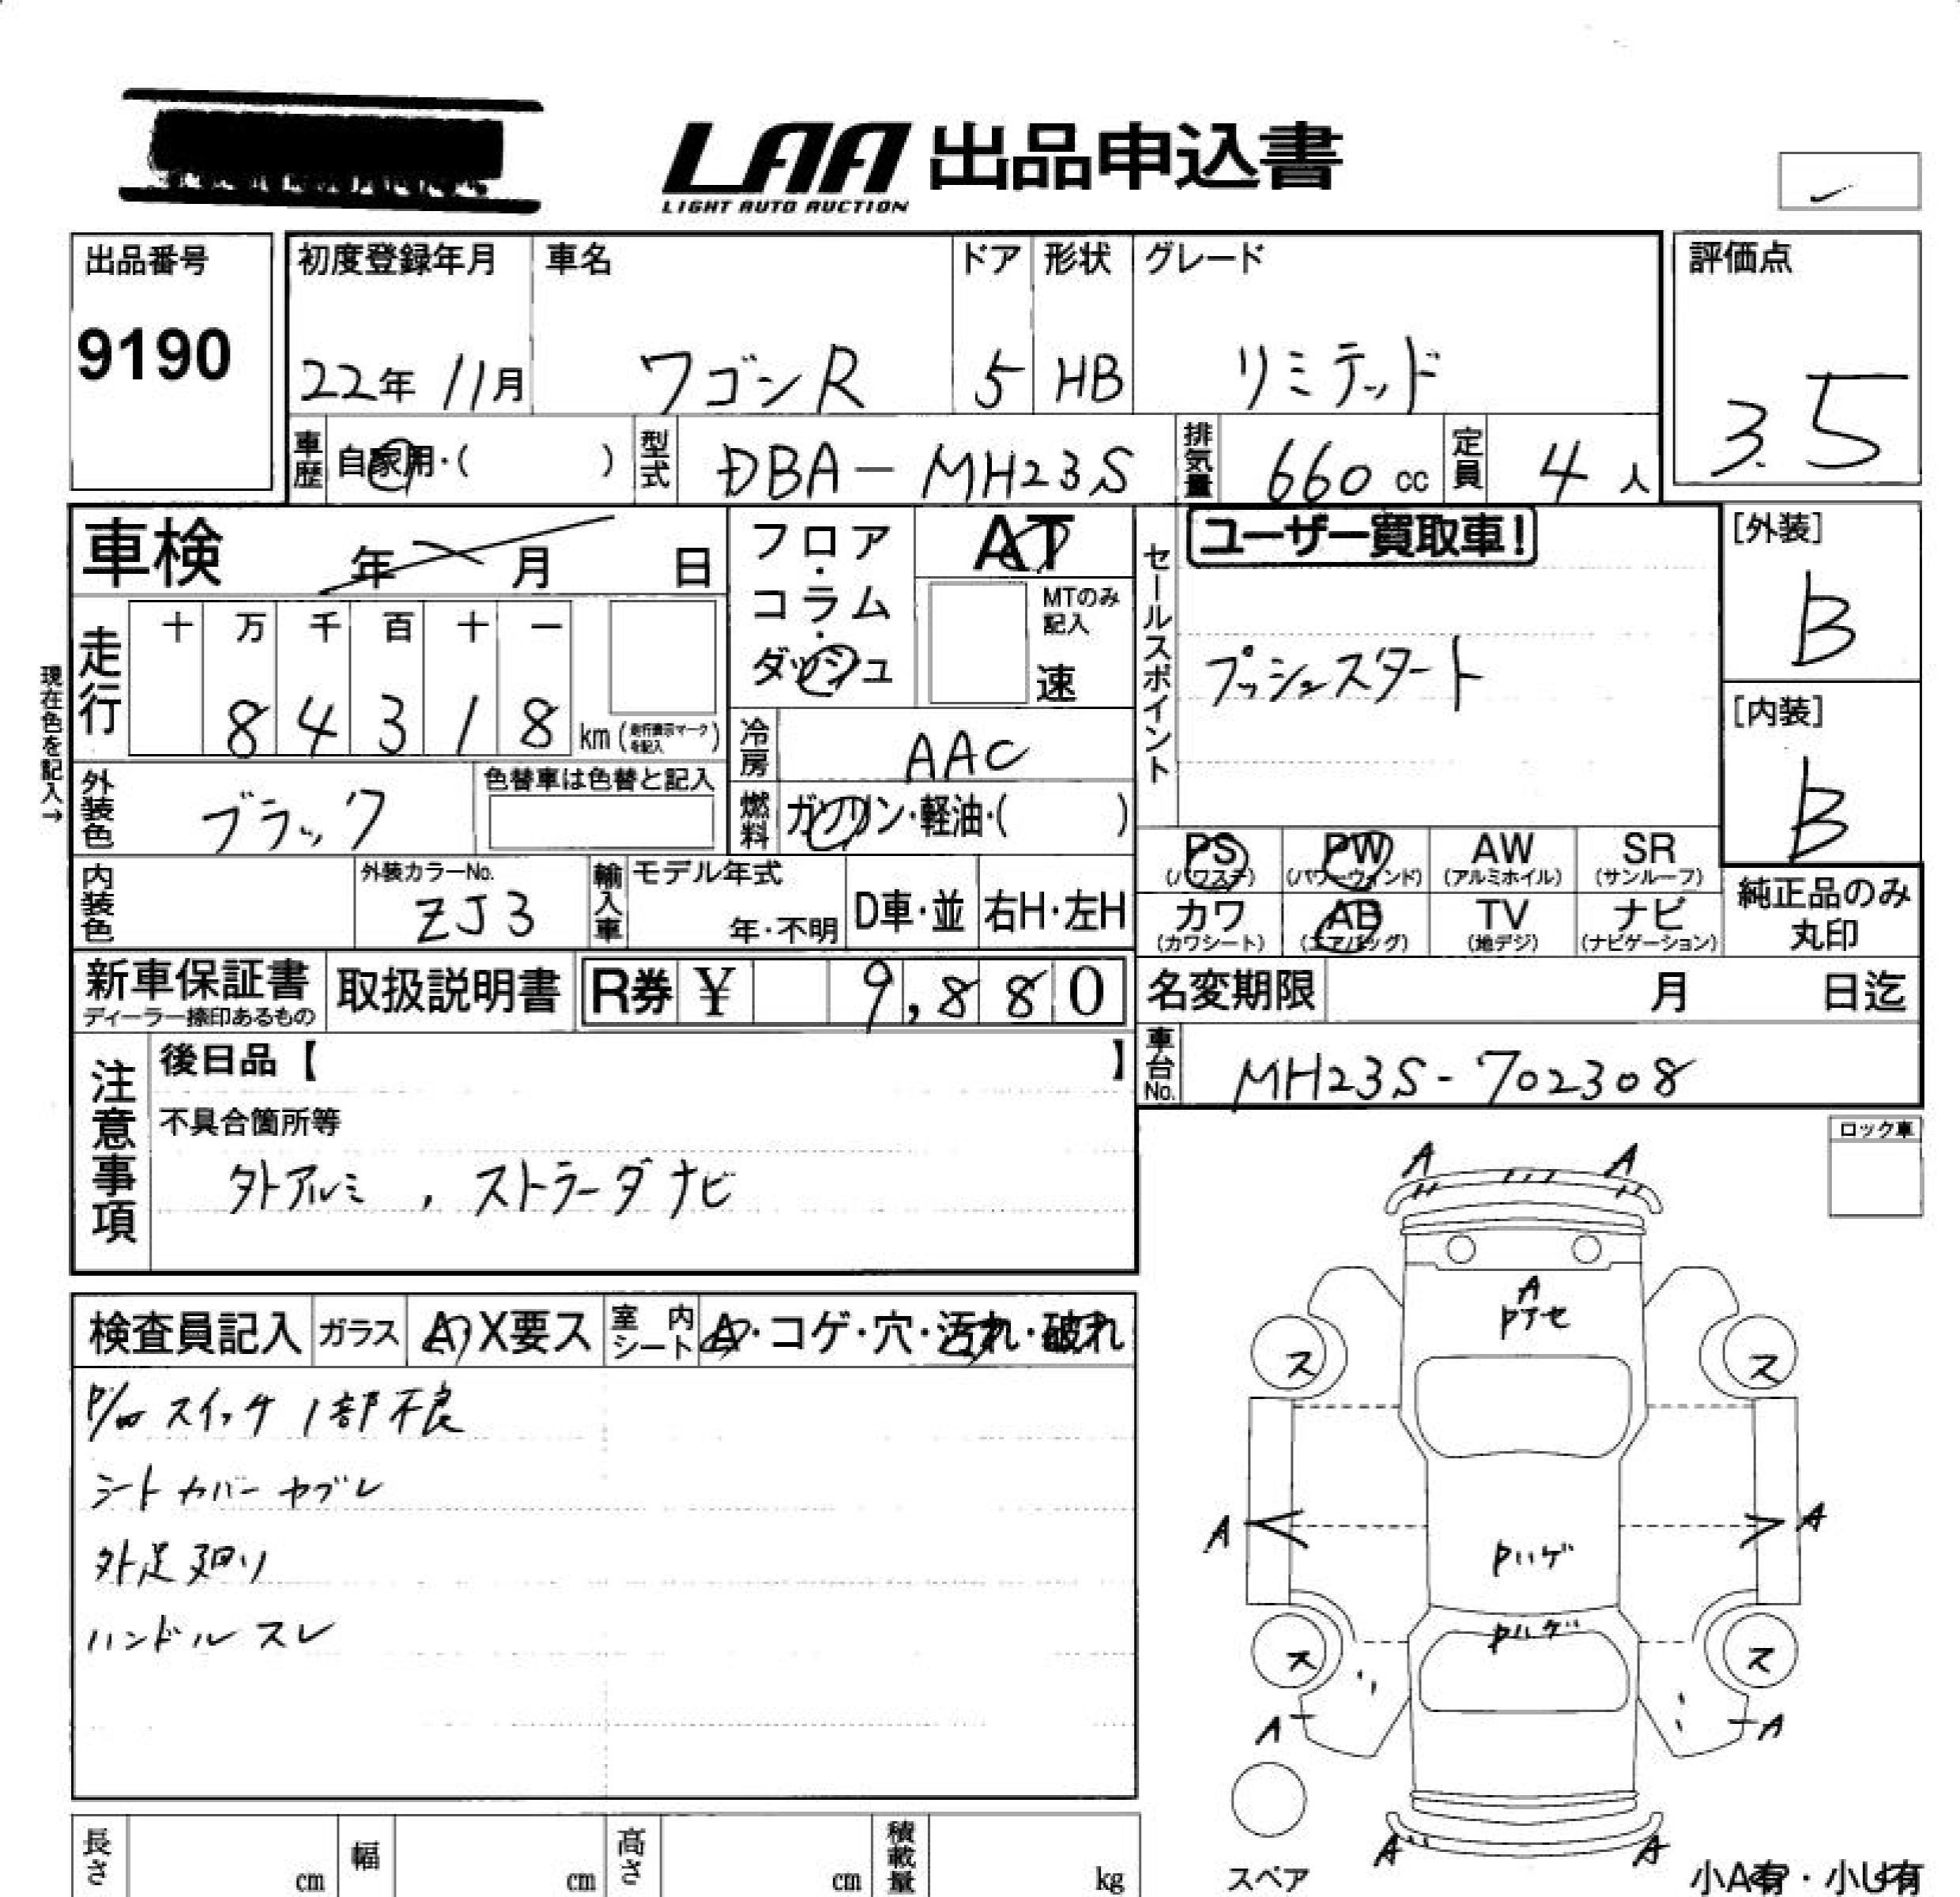 LAA 出品申込書
LIGHT AUTO AUCTION
出品番号
9190
初度登録年月
22年 11月
車名
ワゴンR
ドア
5
形状
HB
グレード
リミテッド
評価点
3.5
車歴
自家用・( )
型式
DBA-MH23S
排気量
660 cc
定員
4 人
車検 年 月 日
フロア・コラム・ダッシュ
AT
MTのみ記入
速
セールスポイント
ユーザー買取車!
プッシュスタート
[外装]
B
[内装]
B
現在色を記入→
走行
十 万 千 百 十 一
8 4 3 1 8 km (走行表示マークを記入)
冷房
AAC
外装色
ブラック
色替車は色替と記入
燃料
ガソリン・軽油・( )
PS (パワステ)
PW (パワーウィンド)
AW (アルミホイル)
SR (サンルーフ)
カワ (カワシート)
AB (エアバッグ)
TV (地デジ)
ナビ (ナビゲーション)
純正品のみ丸印
内装色
外装カラーNo.
ZJ3
輸入車
モデル年式
年・不明
D車・並
右H・左H
新車保証書
ディーラー捺印あるもの
取扱説明書
R券 ¥ 9,880
名変期限 月 日迄
車台No.
MH23S-702308
注意事項
後日品【 】
不具合箇所等
外アルミ , ストラーダナビ
ロック車
検査員記入
ガラス
A X要ス
室内シート
A・コゲ・穴・汚れ・破れ
スイッチ 1部不良
シートカバーヤブレ
外足廻り
ハンドルスレ
A A
A
Pアセ
ス ス
A A
Pハゲ
Pハゲ
ス ス
A A
A A
スペア
小A有・小U有
長さ cm
幅 cm
高さ cm
積載量 kg